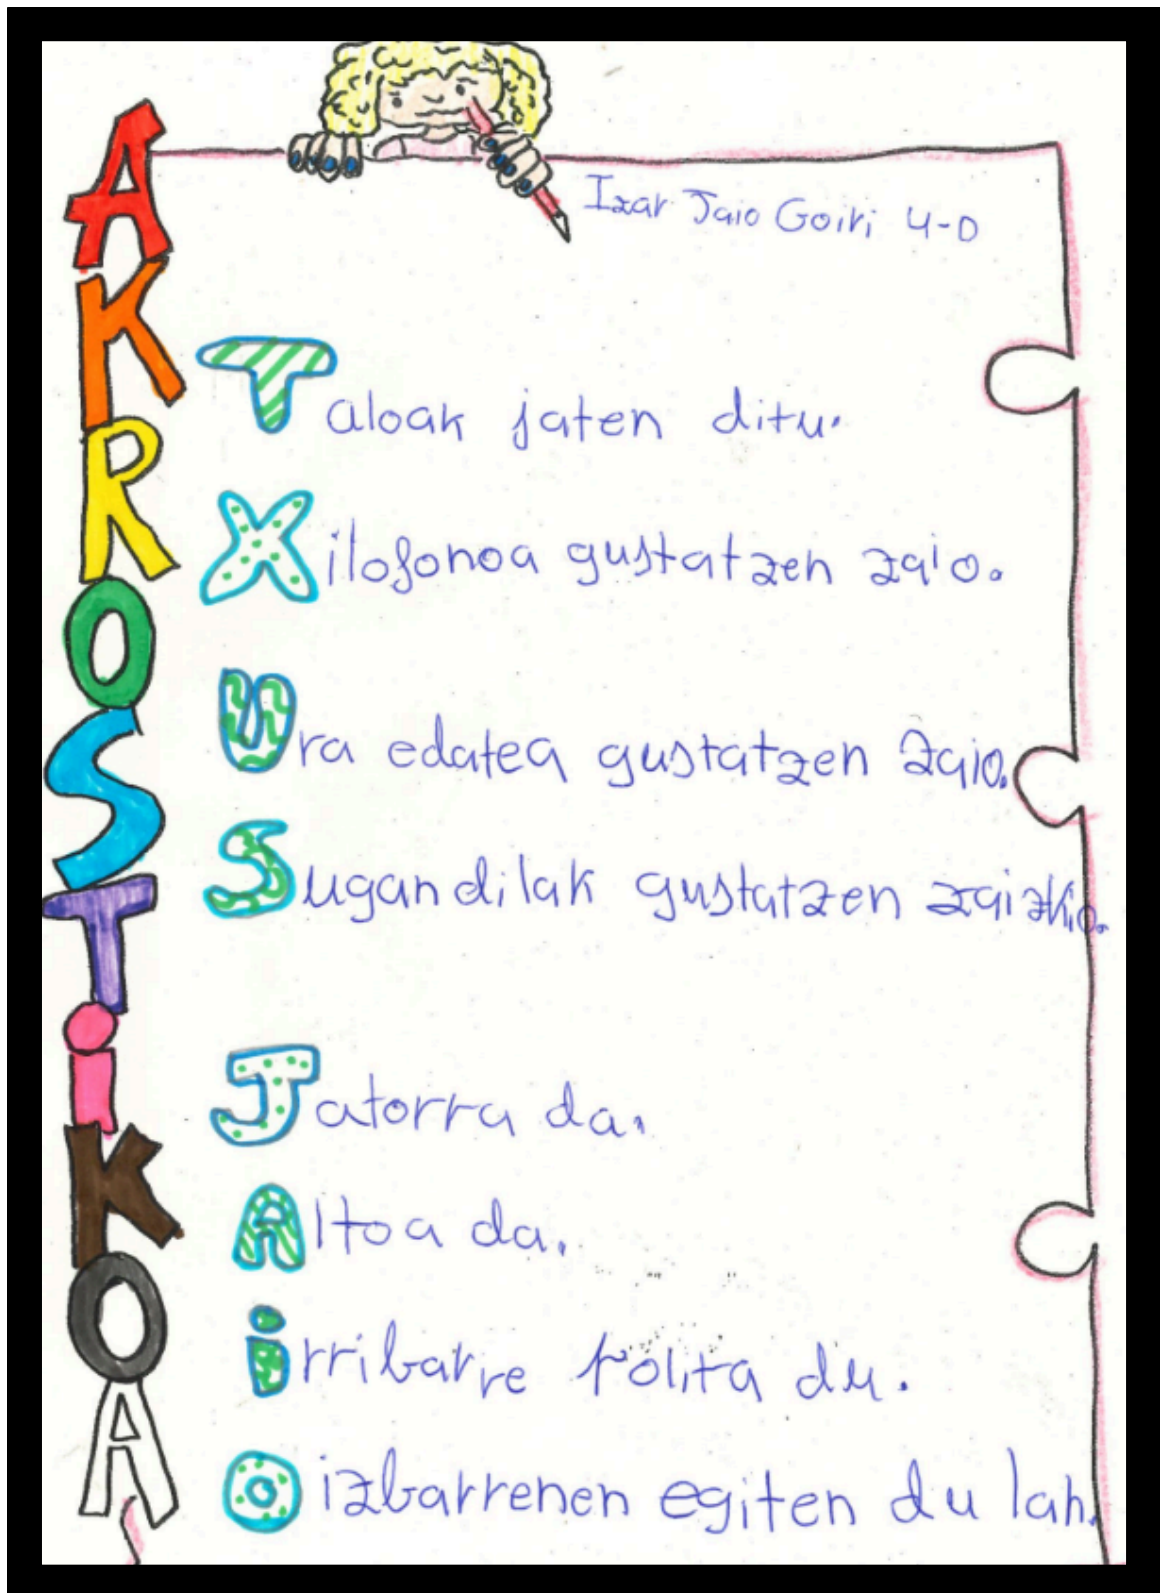 AKROSTiKOA
Izar Jaio Goiri 4-D
Taloak jaten ditu.
Xilofonoa gustatzen zaio.
Ura edatea gustatzen zaio.
Sugandilak gustatzen zaizkio.
Jatorra da.
Altoa da.
irribarre polita du.
Oizbarrenen egiten du lan.